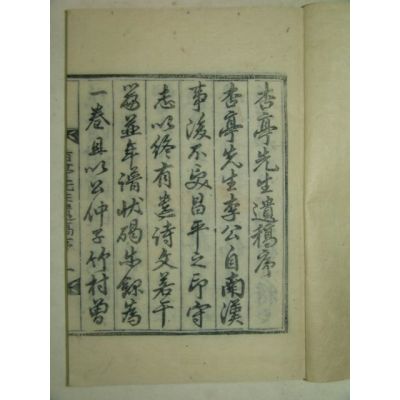 杏亭先生遺稿序
杏亭先生李公自南漢
事後不受昌平之印守
志以終有遺詩文若干
篇並年譜狀碣失錄為
一卷且以公仲子竹村曾